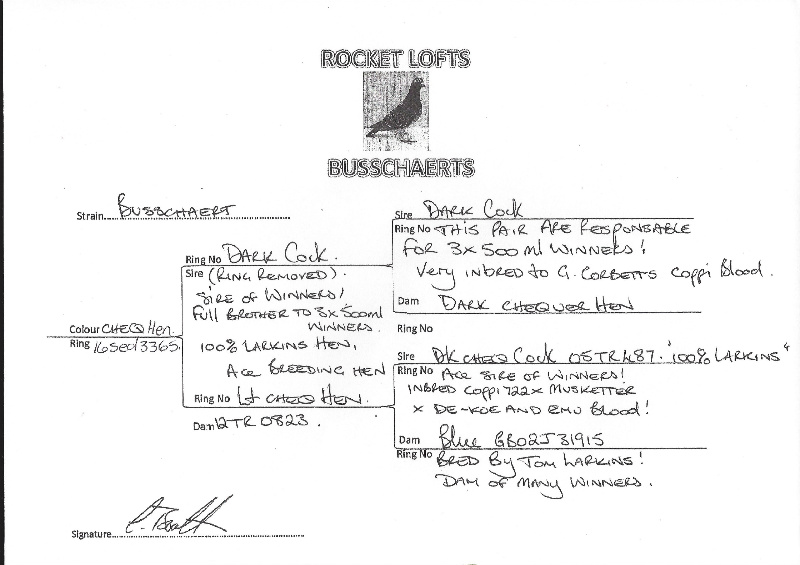 ROCKET LOFTS
BUSSCHAERTS
Strain BUSSCHAERT
Colour CHEQ Hen.
Ring 16Sed13365.
Ring No DARK Cock.
Sire (RING REMOVED).
SIRE OF WINNERS!
FULL BROTHER TO 3x 500ml
WINNERS.
100% LARKINS HEN,
ACE BREEDING HEN
Ring No Lt CHEQ HEN.
Dam 12TR 0823.
Sire DARK Cock
Ring No THIS PAIR ARE RESPONSABLE
FOR 3x 500 ml WINNERS!
Very INBRED to G. CORBETTS Coppi Blood.
Dam DARK CHEQUER HEN
Ring No
Sire DK CHEQ Cock 05TR487. "100% LARKINS"
Ring No ACE SIRE OF WINNERS!
INBRED Coppi 722x MUSKETTER
x DE-KOE AND EMU Blood!
Dam Blue GB02J31915
Ring No BRED By Tom LARKINS!
DAM OF MANY WINNERS.
Signature